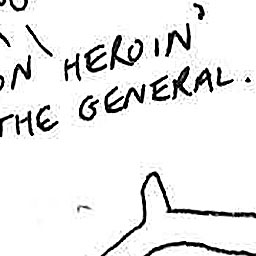 ON 'HEROIN'
THE GENERAL.